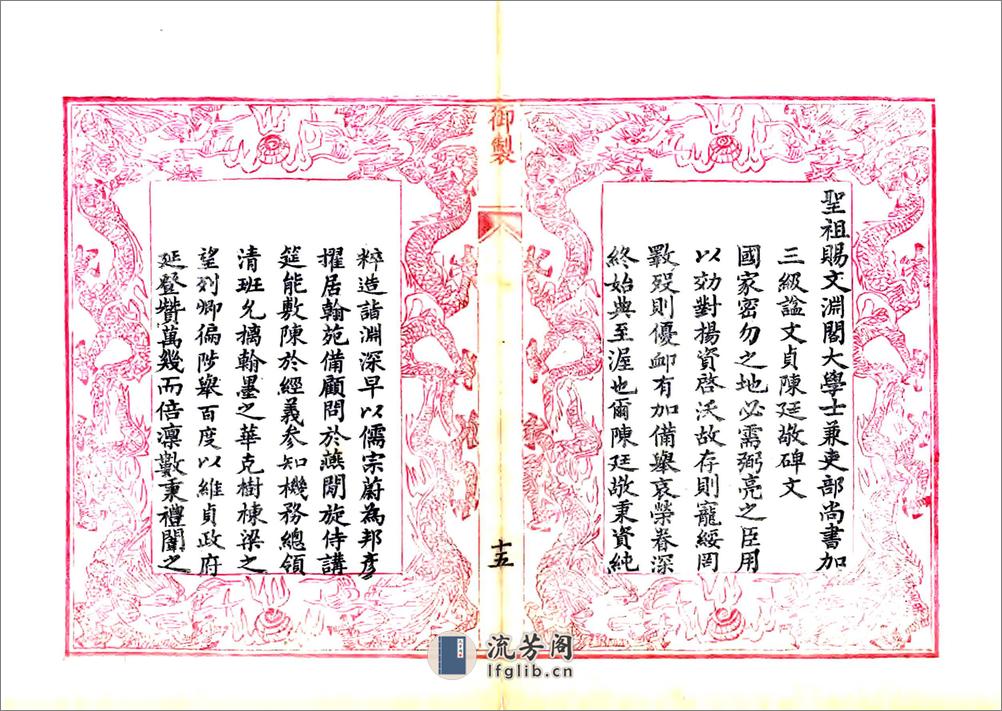 聖祖賜文淵閣大學士兼吏部尚書加
三級諡文貞陳廷敬碑文
國家密勿之地必需弼亮之臣用
以効對揚資啓沃故存則寵綏罔
斁歿則優卹有加備舉哀榮眷深
終始典至渥也爾陳廷敬秉資純
御製
十五
粹造詣淵深早以儒宗蔚為邦彥
擢居翰苑備顧問於燕閒旋侍講
筵能敷陳於經義參知機務總領
清班允摛翰墨之華克樹棟梁之
望列卿徧陟舉百度以維貞政府
延登贊萬幾而倍凛數秉禮闈之
流芳阁
lfglib.cn